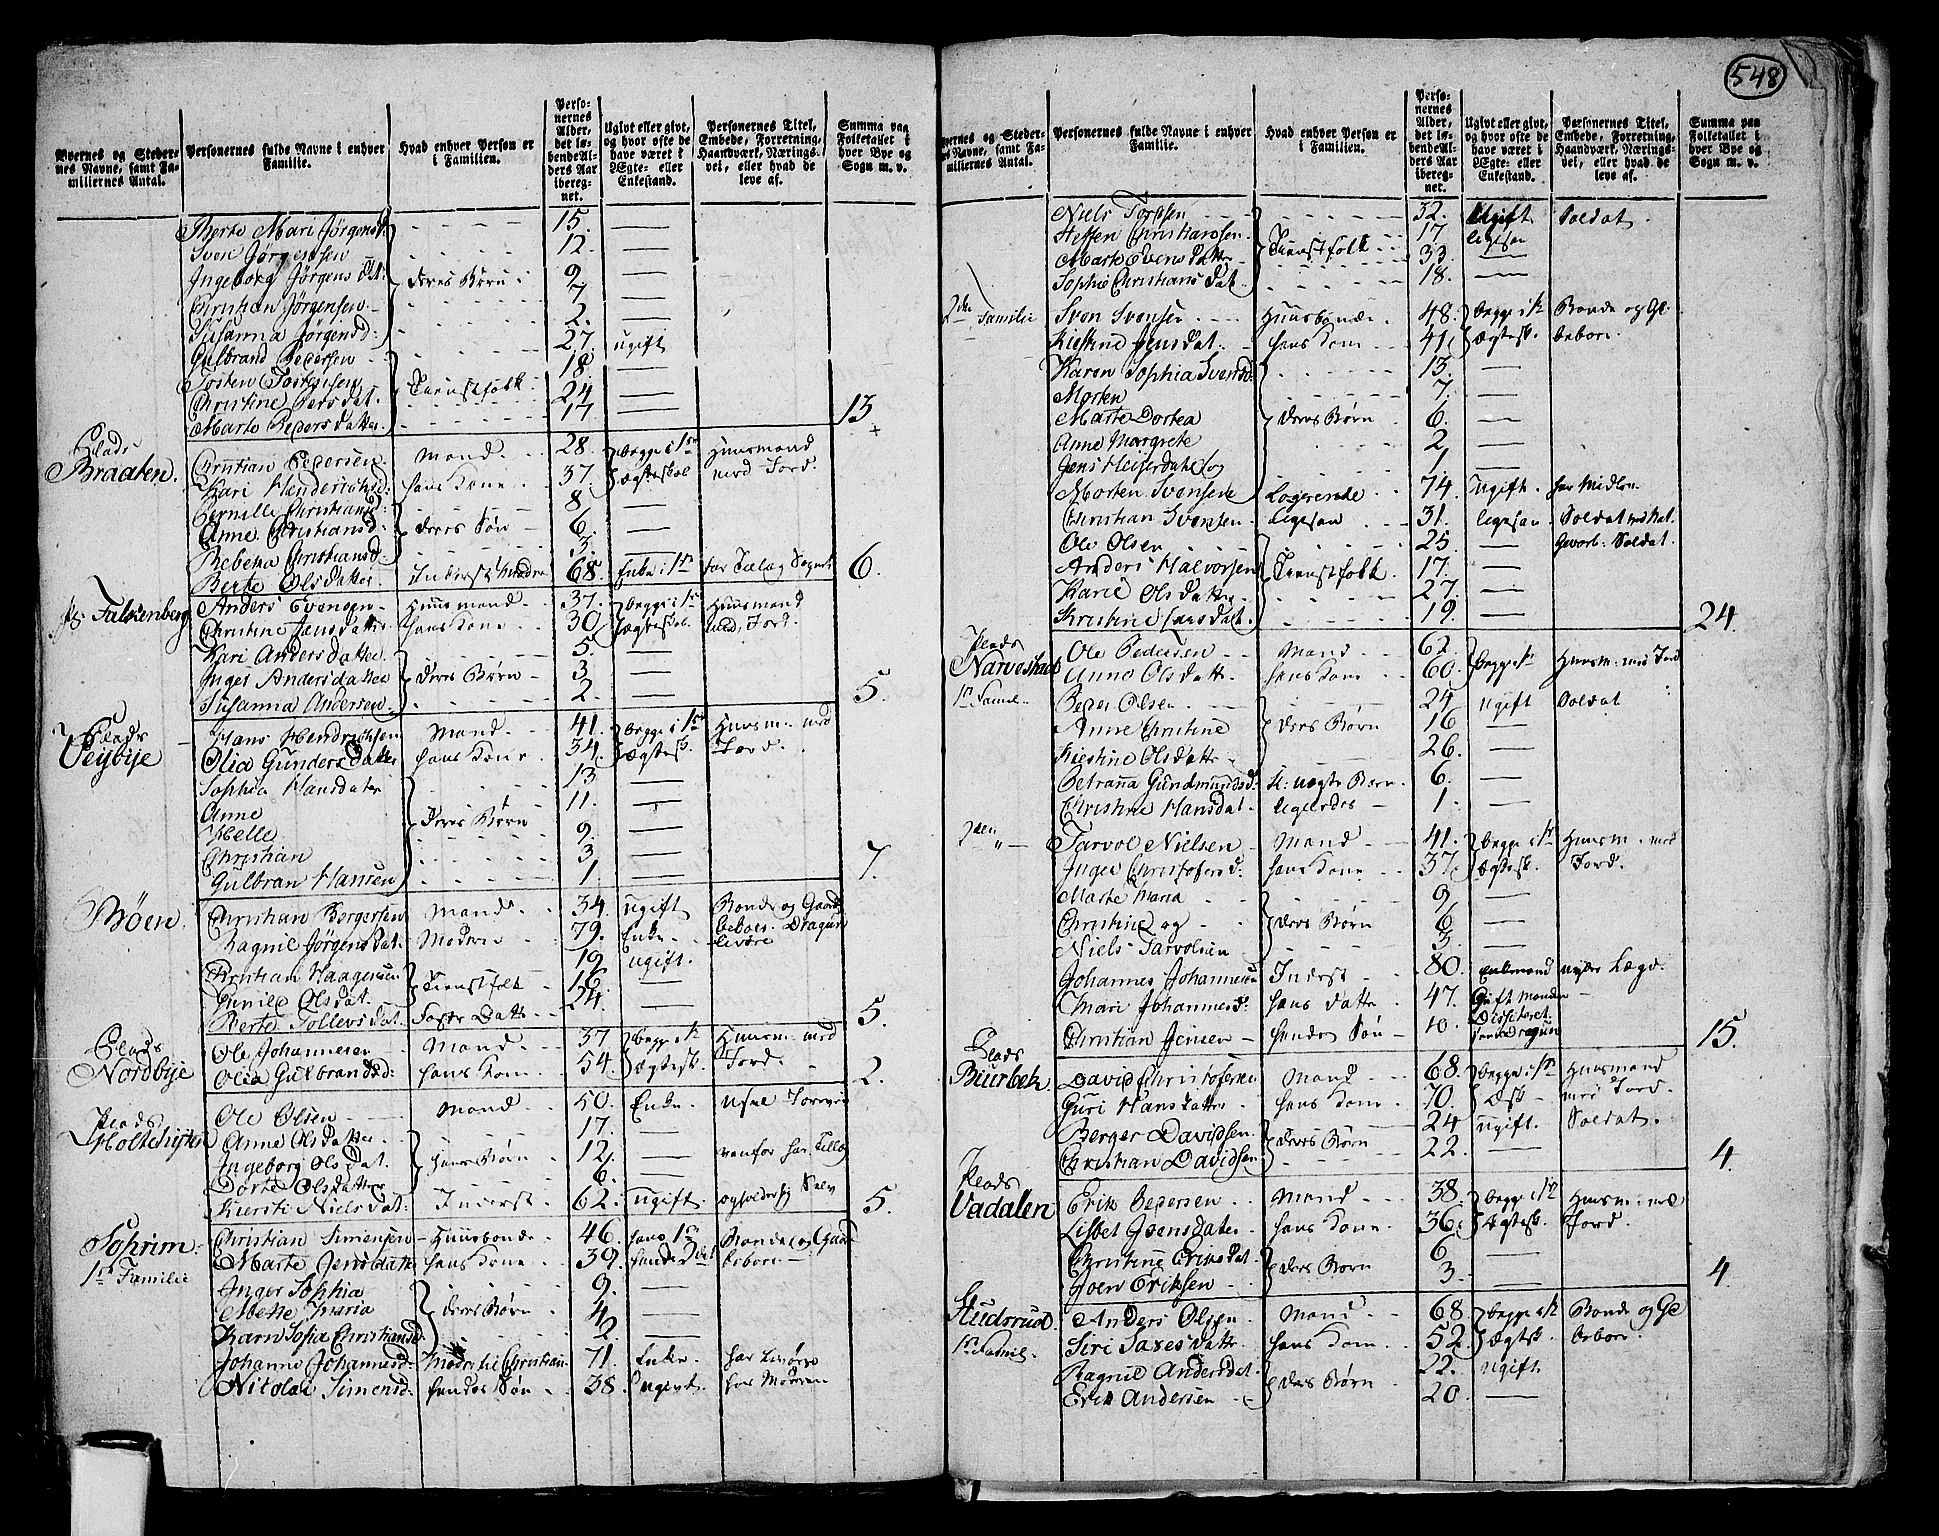 548
Byernes og Stedernes Navne, samt Familiernes Antal. | Personernes fulde Navne i enhver Familie. | Hvad enhver Person er i Familien. | Personernes Alder, det løbende Alders Aar iberegnet. | Ugivt eller givt, og hvor ofte de have været i Ægte- eller Enkestand. | Personernes Titel, Embede, Forretning, Haandværk, Næringsvei, eller hvad de leve af. | Summa paa Folketallet i hver Bye og Sogn m. v.
Berte Mari Jørgensd. 15. —
Sven Jørgensen 12. —
Ingeborg Jørgens dat: deres Børn 9. —
Christian Jørgensen 7. —
Susanna Jørgensd: 2. —
Gulbrand Pedersen 27. ugift
Tosten Tostensen 18. —
Christine Persdat. Tienstfolk 24 —
Marte Pedersdatter 17 — 13
Plads Braaten. Christian Pedersen Mand 28. begge i 1ste Huusmand
Kari Hendrichsd: hans Kone 37. Ægteskab med Jord.
Pernille Christiansd: 8 —
Anne Christiansd: deres Søn 6. —
Rebeka Christiansd: 3. —
Berte Olsdatter Inderst 68. Enke i 1ste 6.
Falkenberg Anders Evensen Huusmand 37. begge i 1ste Huusmand
Christine Jensdatter hans Kone 30 Ægteskab. med Jord.
Kari Andersdatter 5. —
Inger Andersdatter deres Børn 3. —
Susanna Andersen 2. — 5.
Plads Veybye Hans Hendrichsen Mand 41. begge i 1ste Huusm. med
Olia Gundersdatter hans Kone 34. Ægtesk. Jord.
Sophia Hansdatter 13 —
Anne 11. —
Helle deres Børn 9. —
Christian 3. —
Gulbran Hansen 1. — 7.
Bøen Christian Bergersen Mand 34. ugift Bonde og Gaard
Ragnil Jørgensdat. Moder 79. Enke beboer. Dragun
Christian Haagensen 19 ugift.
Gunild Olsdat. Tienstfolk 16. —
Berte Tollevsdat. Datter 24. — 5.
Plads Nordbye Ole Johannesen Mand 37 begge i 1ste Huusm. med
Olia Gulbrandsd: hans Kone 54. Ægtesk. Jord. 2.
Plads Ole Olsen Mand 50. Enke.
Anne Olsdatter 17. —
Ingeborg Olsdat. hans Børn 12. —
Dorte Olsdatter 6. —
Kiersti Nielsdat: Inderst 62. ugift. 5.
Sohrim. Christian Simensen Huusbonde 46. hans 1ste Bonde og Gaard
1ste Familie Marte Jensdatter hans Kone 39. hendes 2det beboer
Inger Sophia 9. —
Mette Maria deres Børn 4. —
Karn Sofia Christiansd. 2. —
Johanne Johannesd: Moder til Christian 71. Enke.
Nikolai Simensd. hendes Søn 38. ugivt. hos Moderen
Byernes og Stedernes Navne, samt Familiernes Antal. | Personernes fulde Navne i enhver Familie. | Hvad enhver Person er i Familien. | Personernes Alder, det løbende Alders Aar iberegnet. | Ugivt eller givt, og hvor ofte de have været i Ægte- eller Enkestand. | Personernes Titel, Embede, Forretning, Haandværk, Næringsvei, eller hvad de leve af. | Summa paa Folketallet i hver Bye og Sogn m. v.
Niels 32. ugift Soldat.
Steffen Christiansen 17 ligesaa
Marte Evensdatter Tienstfolk 33. —
Sophie Christiansdat. 18. —
2den Familie Sven Svensen Huusbonde 48. begge i 1ste Bonde og
Kiestine Jensdat. hans Kone 41. Ægtesk. beboer.
Karen Sophia Svensd: 13. —
Morten 7. —
Marte Dortea deres Børn 6. —
Anne Margrete 2 —
Jens 1. —
Morten Svensen Logerende 74. ugift.
Christian Svensen. ligesaa 31. ligesaa. Soldat
Ole Olsen 25. — Gevorb. Soldat.
Anders Halvorsen Tienstfolk. 17. —
Karie Olsdatter 27. —
Kristine Larsdat. 19. — 24.
Plads Narvestad Ole Pedersen Mand 62. begge 1ste Huusm. med Jord
1ste Famil. Anne Olsdatter hans Kone 60.
Peder Olsen 24 ugift Soldat
Anne Christine deres Børn 16 —
Kiestine Olsdatter 26. —
Petranna Gundmundsd: uægte Barn 6. —
Christine Hansdat. ligeledes 1. —
2den " Tarvol Nielsen Mand 41. begge i 1ste Huusm. med
Inger Christofersd: hans Kone 37. Ægtesk. Jord.
Marte Maria 9 —
Christine og deres Børn 6 —
Niels Tarvolsen 3. —
Johannes Johannesen Inderst 80. Enkemand nyder Lægd.
Mari Johannesd. hans datter 47. Gift Manden
Christian Jensen hendes Søn 10. Dragun 15.
Plads Biurbek David Christofersen Mand 68. begge i 1ste Huusmand
Guri Hansdatter hans Kone 70. Ægtesk. med Jord.
Berger Davidsen deres Børn 24 ugift. Soldat.
Christian Davidsen 22. — 4.
Plads Vadalen Erik Pedersen Mand 38. begge i 1ste Huusm. med
Lisbet hans Kone 36. Ægtesk. Jord.
Christine Eriksdat. deres Børn 6. —
Joen Eriksen 3. — 4.
Studsrud Anders Olsen Mand 68. begge i 1ste Bonde og
1ste Famil. Siri hans Kone 52. Ægtesk. beboer.
Ragnil Andersdat. deres Børn 22. ugift
Erik Andersen 20 —